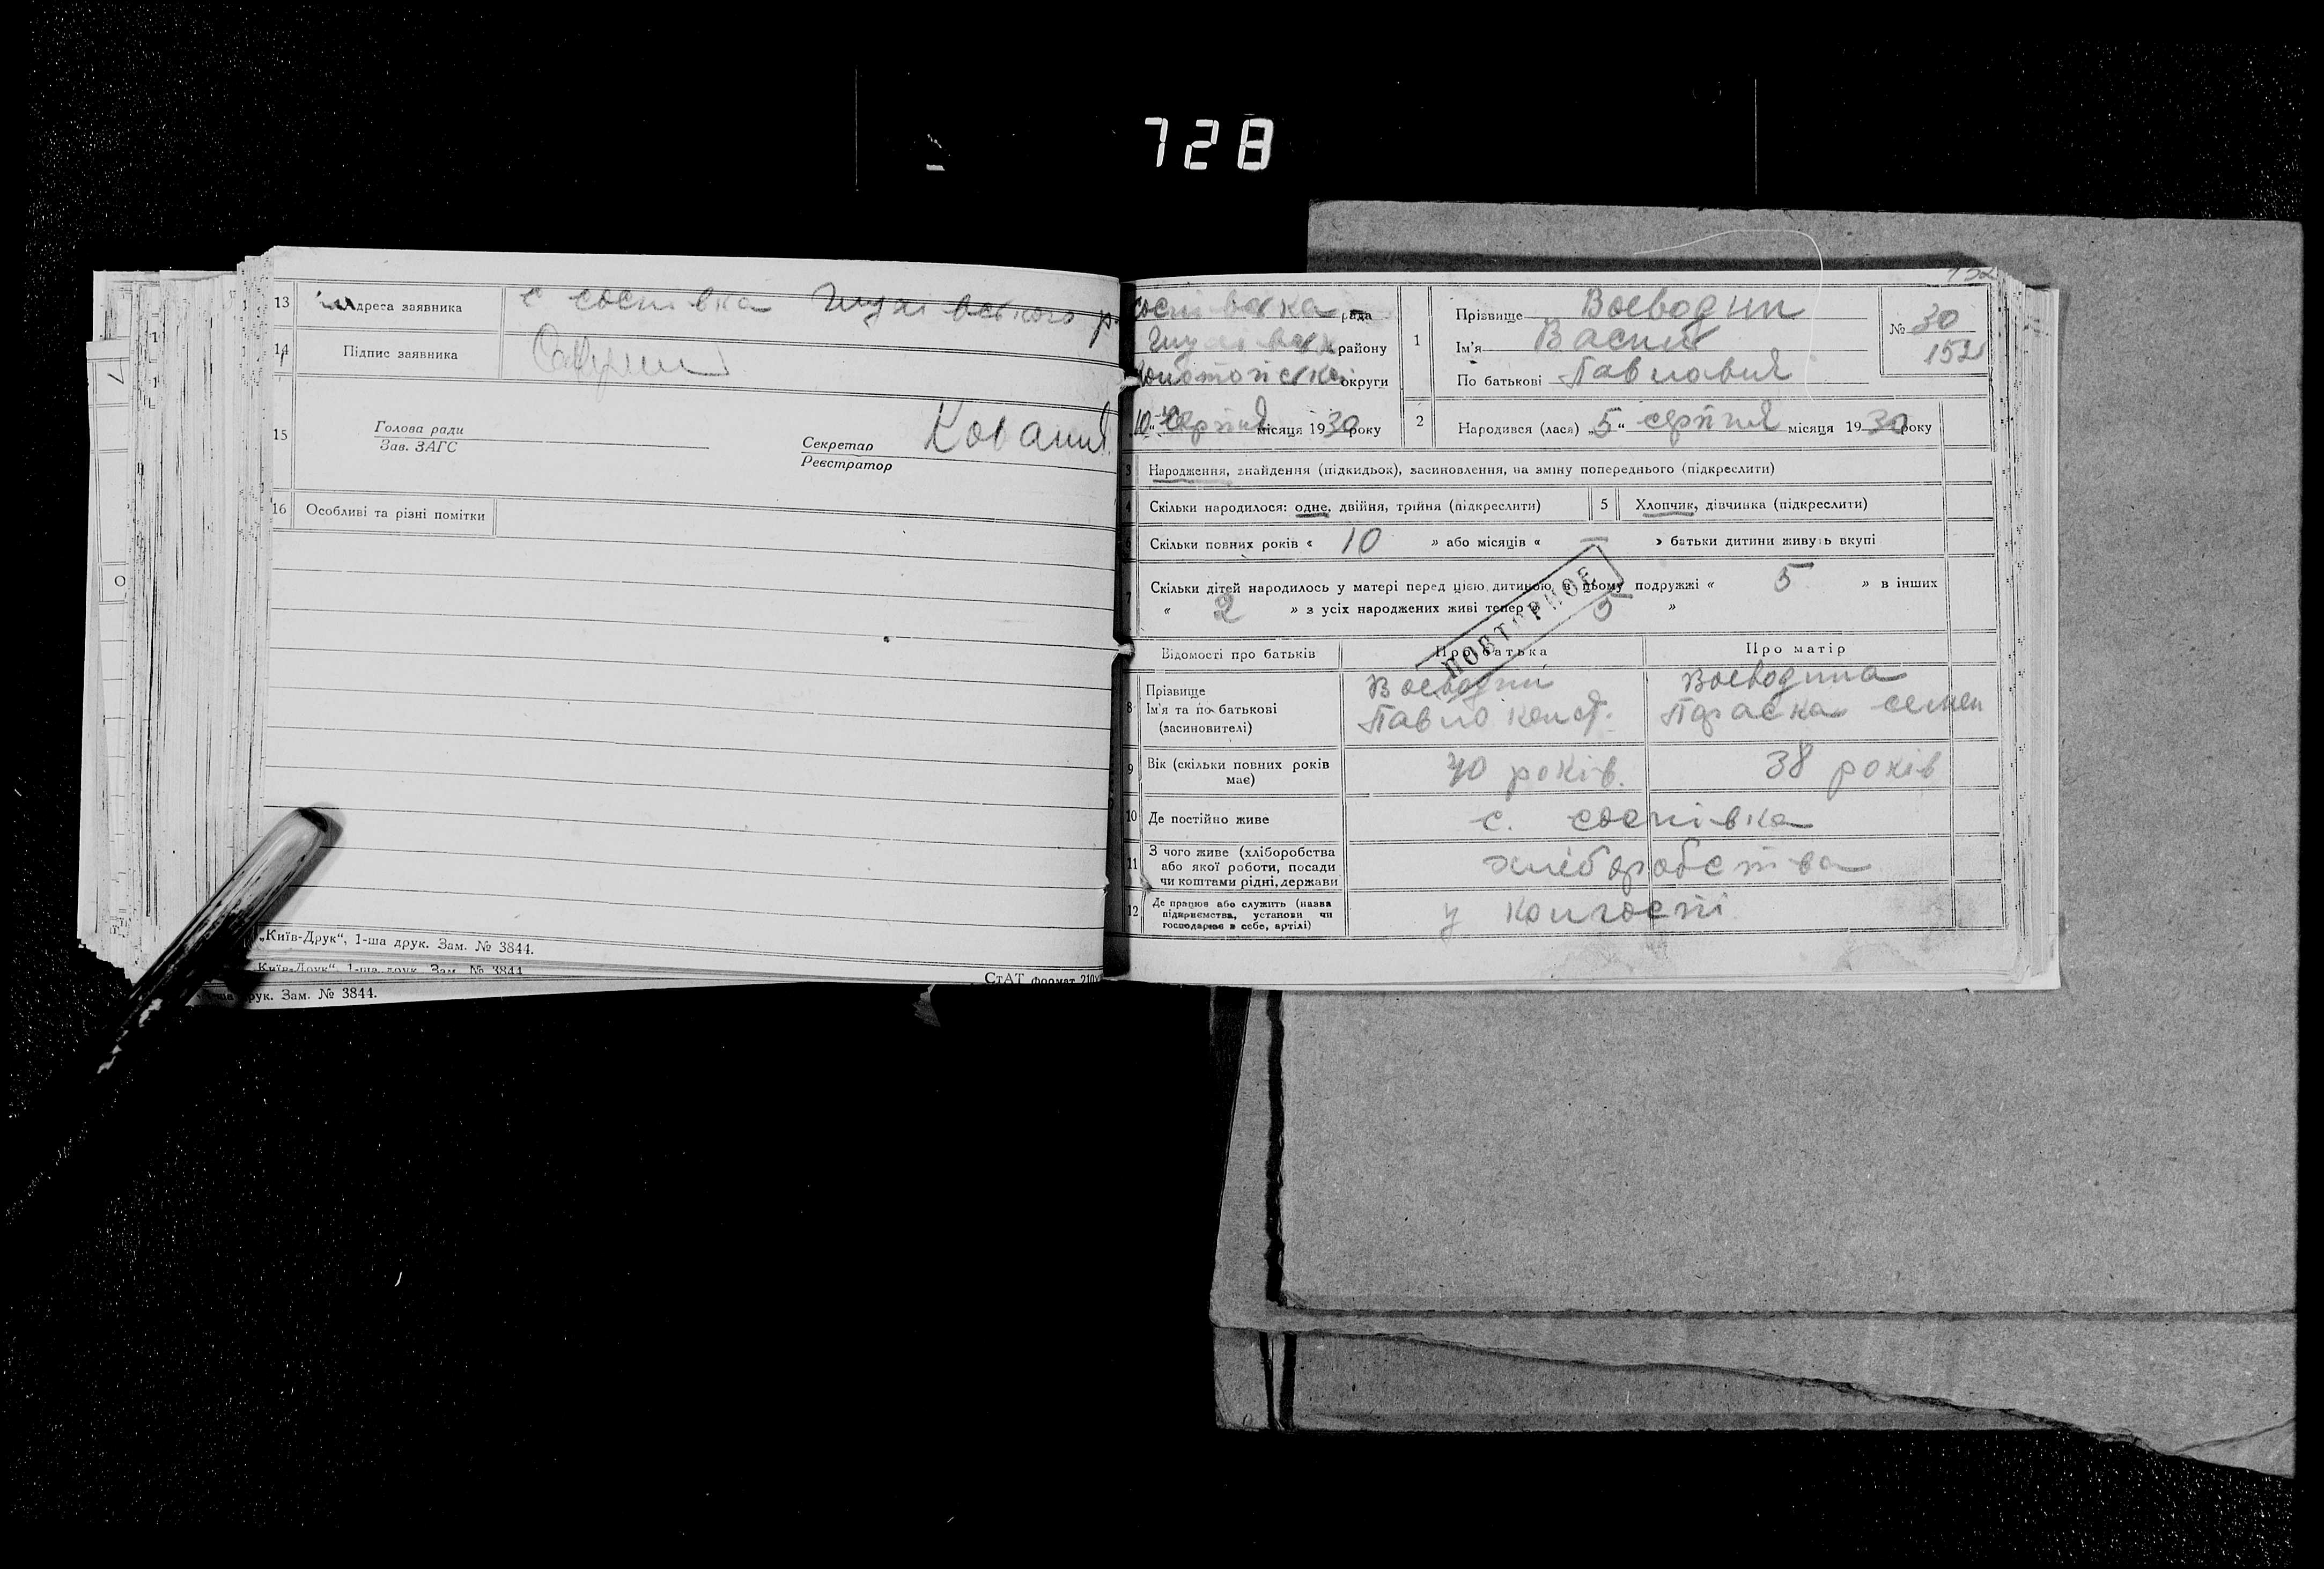 728
13 Адреса заявника с соснівка Глухівського р.
14 Підпис заявника
15 Голова ради
Зав. ЗАГС
Секретар
Реєстратор
16 Особливі та різні помітки
„Київ-Друк“, 1-ша друк. Зам. № 3844.
„Київ-Друк“, 1-ша друк. Зам. № 3844
рук. Зам. № 3844.
СтАТ формат 210
152
рада
району
округи
„10“ серпня місяця 1930 року
1 Прізвище Воеводин
Ім'я Василь
По батькові Павлович
№ 30
152
2 Народився (лася) „5“ серпня місяця 1930 року
3 Народження, знайдення (підкидьок), засиновлення, на зміну попереднього (підкреслити)
4 Скільки народилося: одне, двійня, трійня (підкреслити)
5 Хлопчик, дівчинка (підкреслити)
6 Скільки повних років « 10 » або місяців « — » батьки дитини живуть вкупі
7 Скільки дітей народилось у матері перед цією дитиною в цьому подружжі « 5 » в інших
« 2 » з усіх народжених живі тепер « 5 »
ПОВТОРНОЕ
Відомості про батьків Про батька Про матір
8 Прізвище Воеводин Воеводина
Ім'я та по батькові Павло Конст. Параска семен
(засиновителі)
9 Вік (скільки повних років має) 40 років. 38 років
10 Де постійно живе с. соснівка
11 З чого живе (хліборобства
або якої роботи, посади хліборобства
чи коштами рідні, держави
12 Де працює або служить (назва
підприємства, установи чи
господарює в себе, артілі)